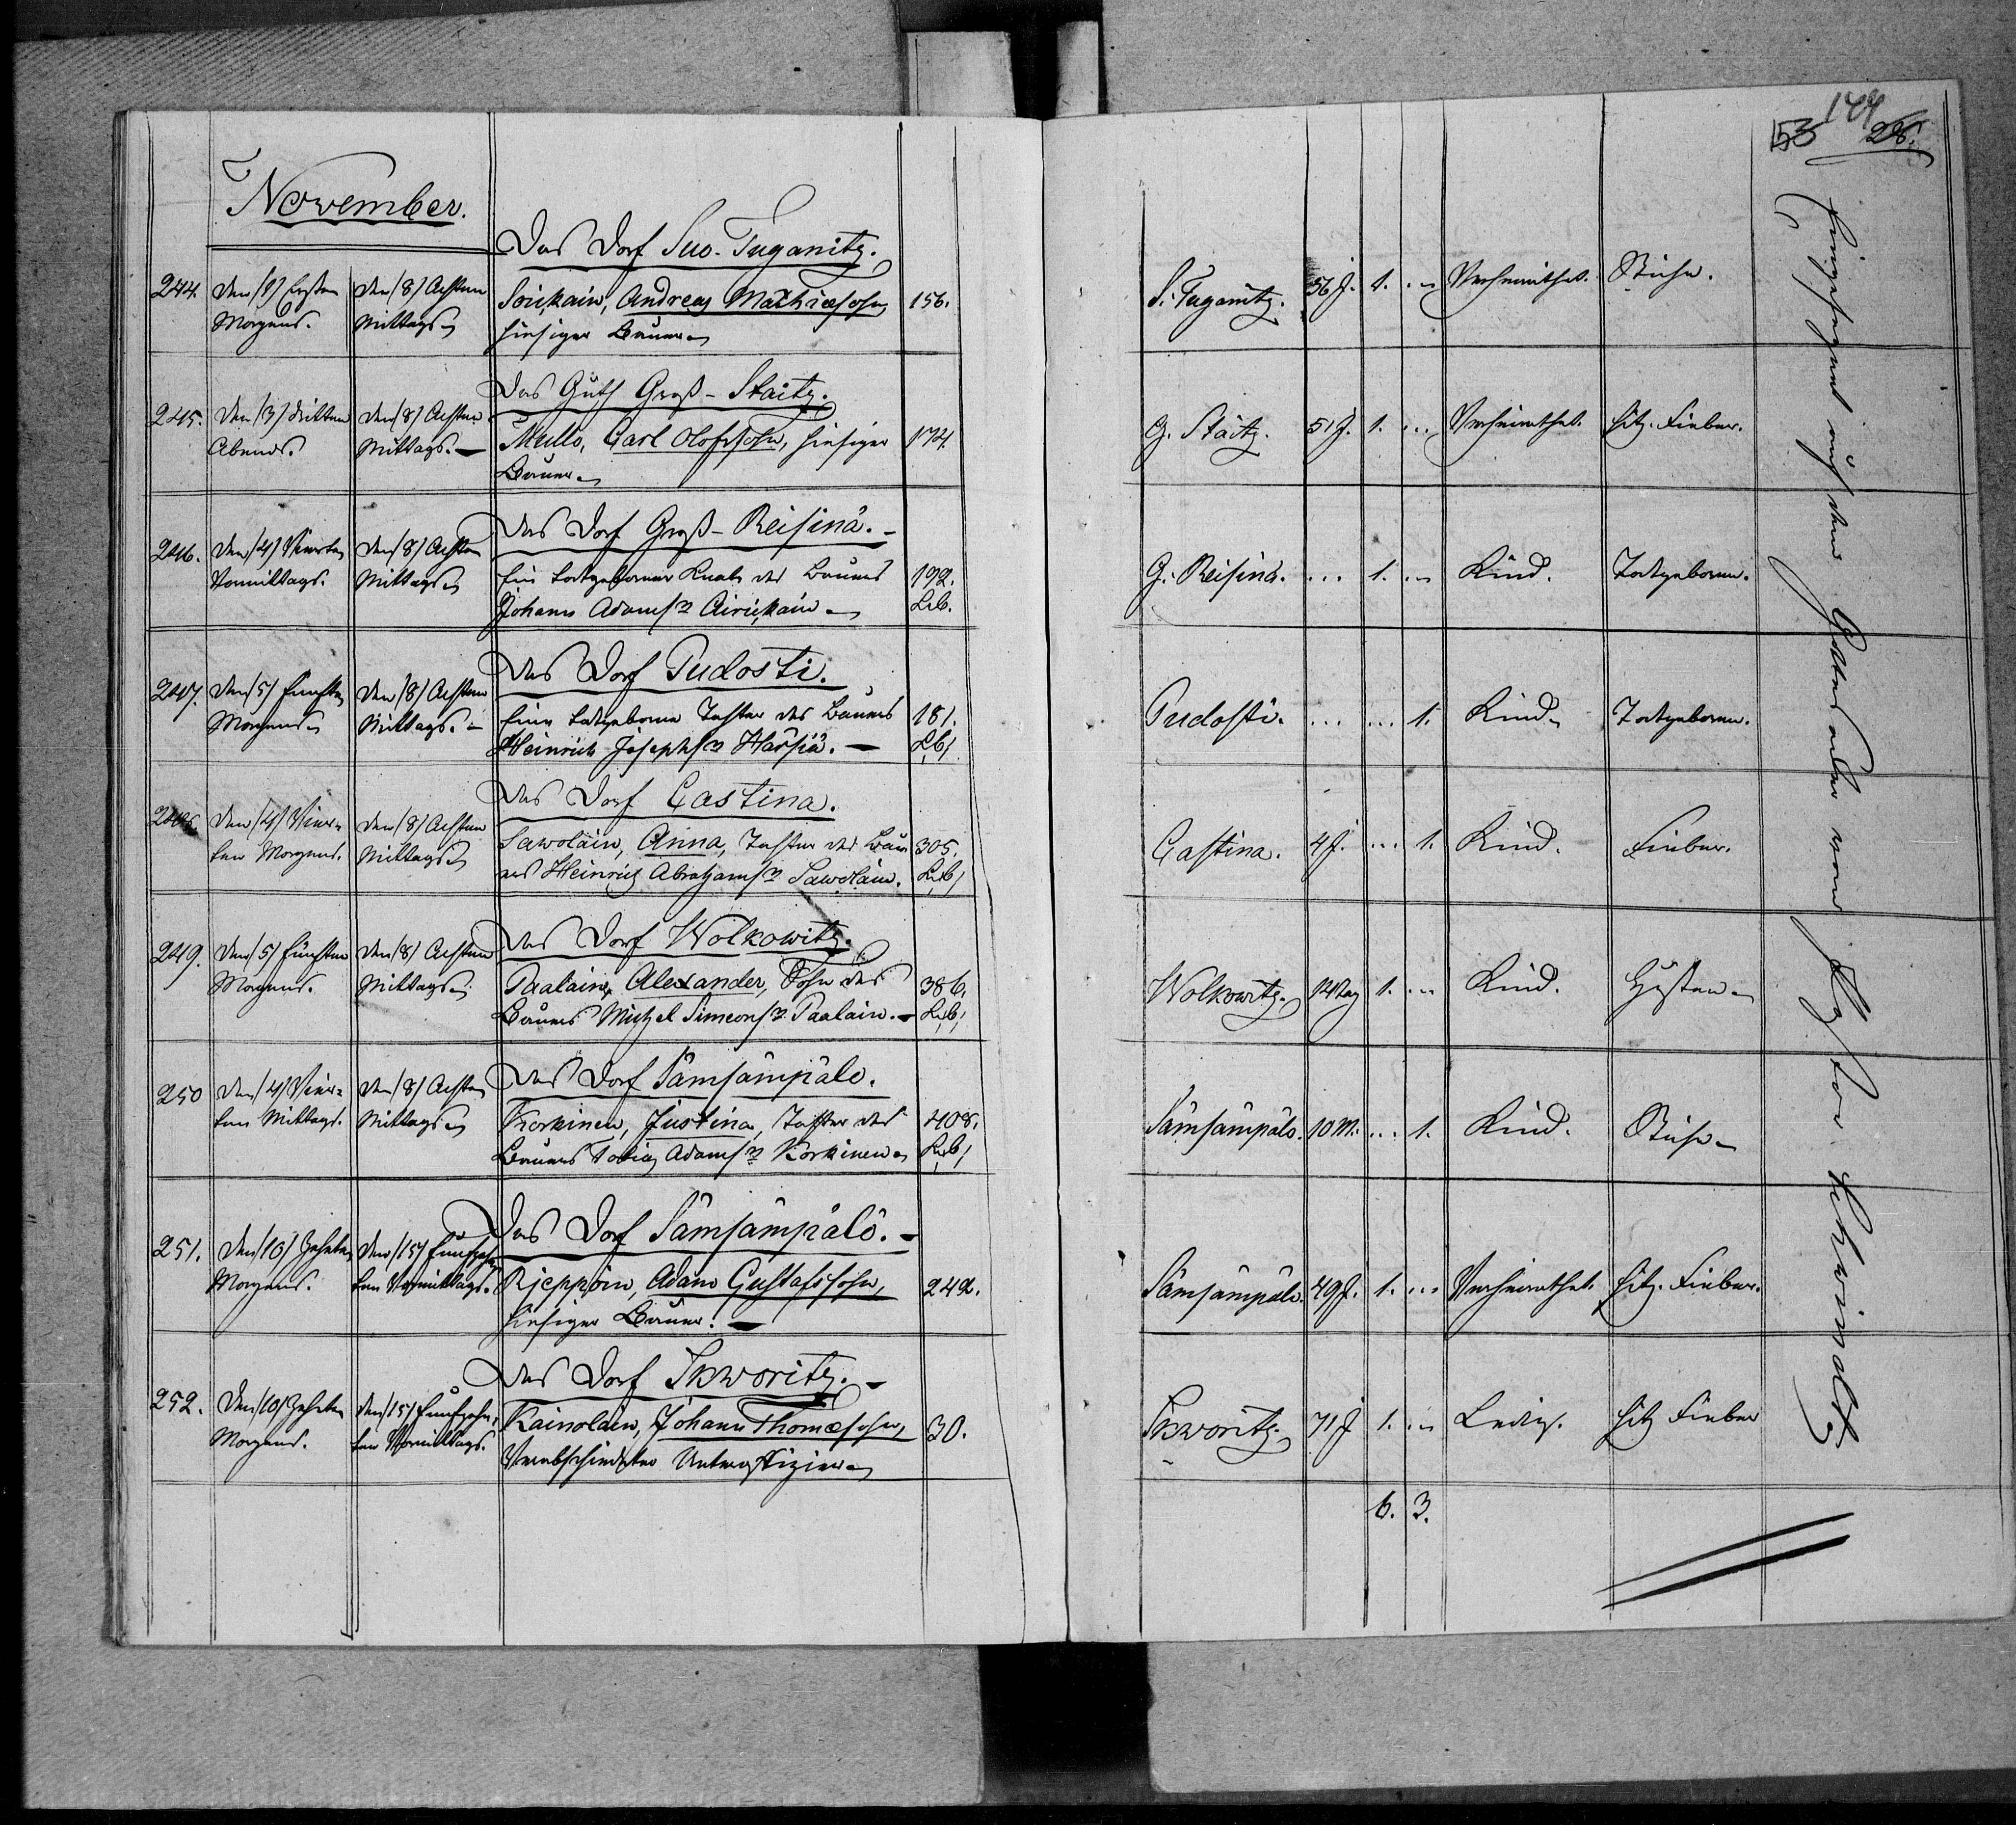 November.
Das Dorf Suo-Tuganitz.
244. Den /1/ Ersten Morgens. Den /8/ Achten Mittags
Soickain, Andreas Mathiæsohn, 156.
hiesiger Bauer
Das Guth Groß-Staitz.
245. Den /3/ Dritten Abends. Den /8/ Achten Mittags.
Mullo, Carl Olofssohn, hiesiger 174.
Bauer
Das Dorf Groß-Reisinä.
246. Den /4/ Vierten Vormittags. Den /8/ Achten Mittags
Ein todtgeborner Knabe des Bauers 192.
Johann Adams Airickain L.b.
Das Dorf Pudosti.
247. Den /5/ Fünften Morgens Den /8/ Achten Mittags.
Eine todtgeborne Tochter des Bauers 181.
Heinrich Josephs Härjiä. L.b.
Das Dorf Castina.
248. Den /4/ Vier-
ten Morgens. Den /8/ Achten Mittags
Sawolain, Anna, Tochter des Bau 305.
ers Heinrich Abrahams Sawolain. L.b.
Das Dorf Wolkowitz.
249. Den /5/ Fünften Morgens. Den /8/ Achten Mittags
Paalain, Alexander, Sohn des 386.
Bauers Michel Simeons Paalain. L.b.
Das Dorf Sämsämpälö.
250 Den /4/ Vier-
ten Mittags. Den /8/ Achten Mittags
Korkinen, Justina, Tochter des 408.
Bauers Tobias Adams Korkinen L.b.
Das Dorf Sämsämpälö.
251. Den /10/ Zehnten Morgens. Den /15/ Fünfzehn
ten Vormittags.
Rjeppöin, Adam Gustafssohn, 242.
hiesiger Bauer.
Das Dorf Skworitz.
252. Den /10/ Zehnten Morgens. Den /15/ Fünfzehn-
ten Vormittags.
Kainolain, Johann Thomæsohn, 30.
Verabschiedeter Unteroffizier
144
53 28.
S. Tuganitz. 56 J. 1. ... Verheirathet. Ruhr.
G. Staitz. 51 J. 1. ... Verheirathet. hitz. Fieber.
G. Reisinä. ... 1. ... Kind. Todtgeboren.
Pudosti. ... ... 1. Kind. Todtgeboren.
Castina. 4 J. ... 1. Kind. Fieber.
Wolkowitz. 14 Tag 1. ... Kind. Husten
Sämsämpälö. 10 M. ... 1. Kind. Ruhr
Sämsämpälö. 49 J. 1. ... Verheirathet. hitz. Fieber.
Skworitz. 71 J 1. ... Ledig. hitz Fieber
6. 3.
Eingesegnet auf dem Gottesacker vom Pastor Schwindt